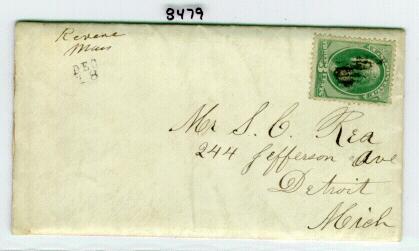 8479
Revere
Mass
DEC
18
Mr S. C. Rea
244 Jefferson Ave
Detroit
Mich